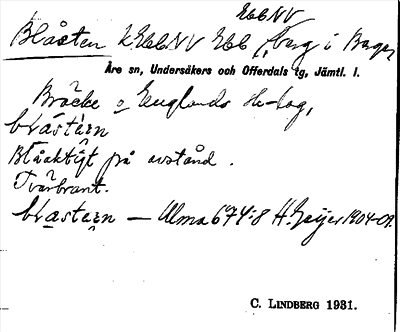 EbbNV
Blåsten k EbbNV Ebb, berg i
Åre sn, Undersåkers och Offerdals tg, Jämtl. l.
Bräcke o Englands
blástæ̀n
Blåaktigt på avstånd.
Tvärbrant.
blástæ̀n — Ulma 674:8 H. Geijer 1904-09.
C. LINDBERG 1931.